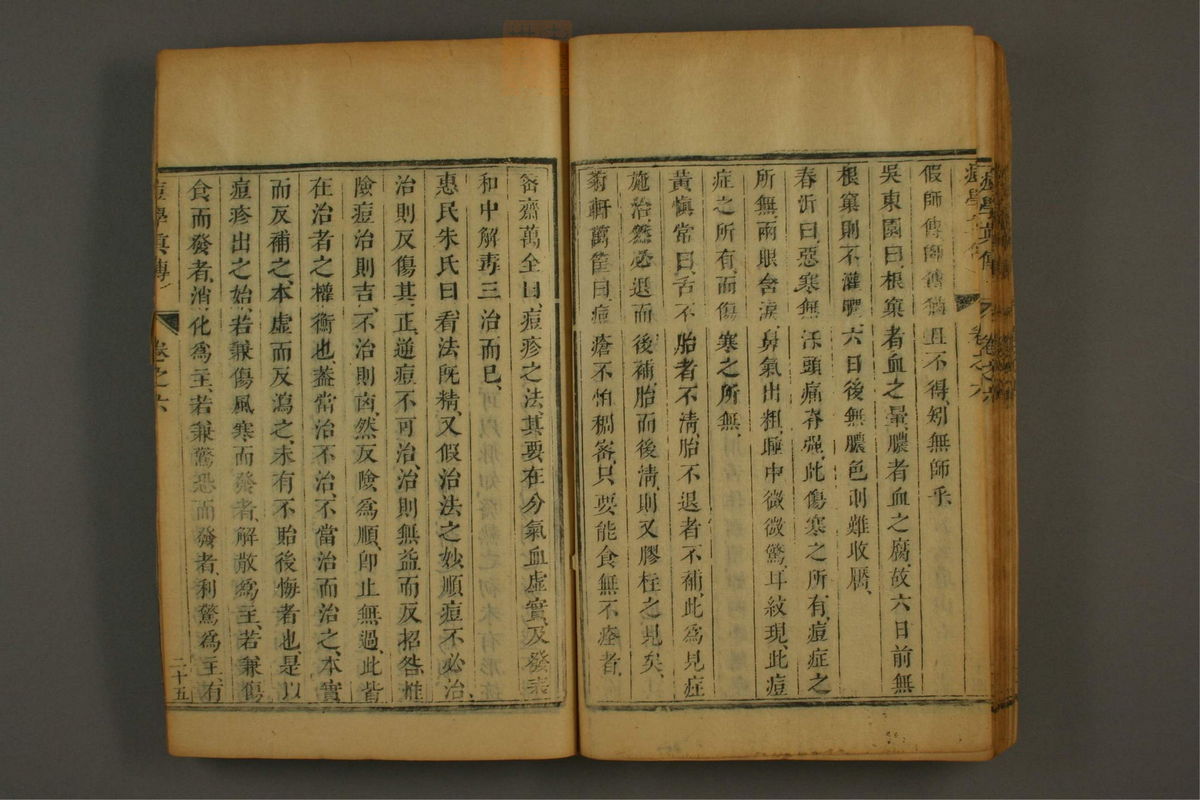 假師傳師傳猶且不得矧無師乎
吳東園曰根窠者血之暈膿者血之腐故六日前無
根窠則不灌膿六日後無膿色則難收靨
春沂曰惡寒無汗頭痛脊强此傷寒之所有痘症之
所無兩眼含淚鼻氣出粗睡中微微驚耳紋現此痘
症之所有而傷寒之所無
黃愼常曰舌不胎者不淸胎不退者不補此爲見症
施治然必退而後補胎而後淸則又膠柱之見矣
菊軒萬筐曰痘瘡不怕稠密只要能食無不痊者
密齋萬全曰痘疹之法其要在分氣血虛實及發表
和中解毒三治而已
惠民朱氏曰看法旣精又假治法之妙順痘不必治
治則反傷其正逆痘不可治治則無益而反招咎惟
險痘治則吉不治則凶然反險爲順卽止無過此皆
在治者之權衡也蓋當治不治不當治而治之本實
而反補之本虛而反瀉之未有不貽後悔者也是以
痘疹出之始若兼傷風寒而發者解散爲主若兼傷
食而發者消化爲主若兼驚恐而發者利驚爲主有
痘學眞傳
卷之六
二十五